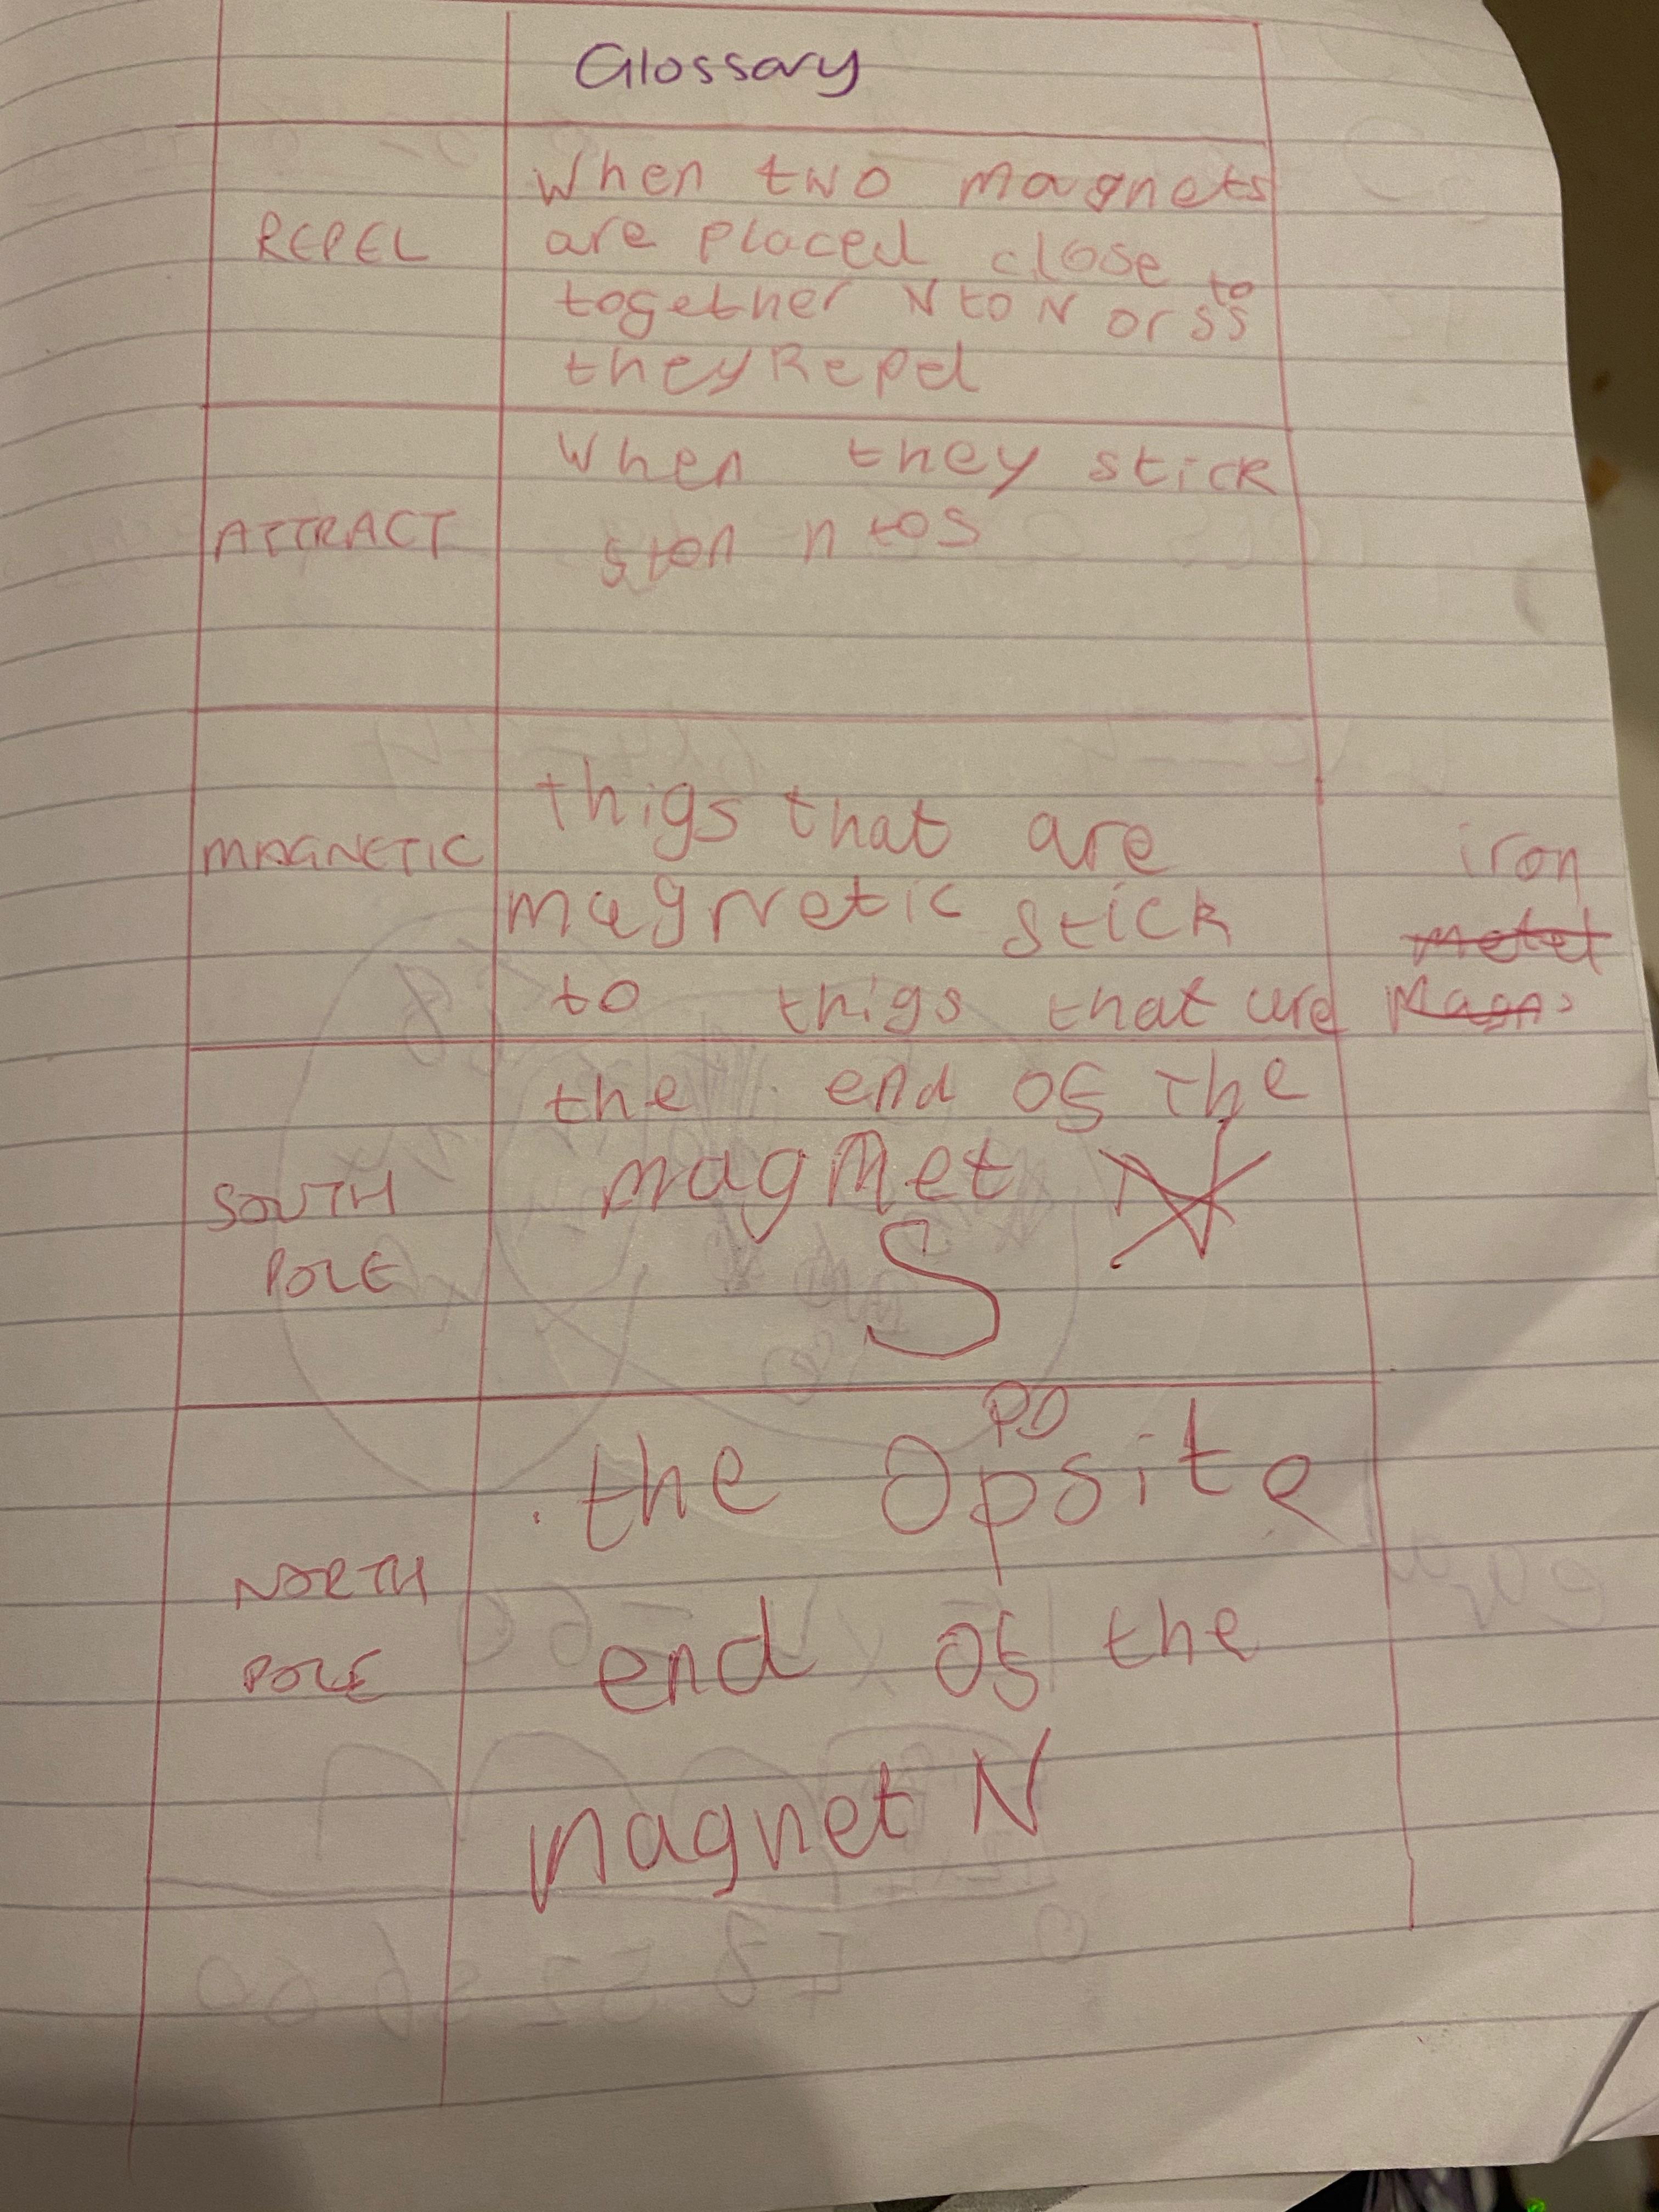 Glossary
REPEL
When two magnets
are placed close
together N to N or S to S
they Repel
ATTRACT
When they stick
S to n n to S
MAGNETIC
thigs that are
magnetic stick
to thigs that are iron
metel
Magn
SOUTH
POLE
the end of the
magmet N
S
NORTH
POLE
the Oppositе
end of the
magnet N